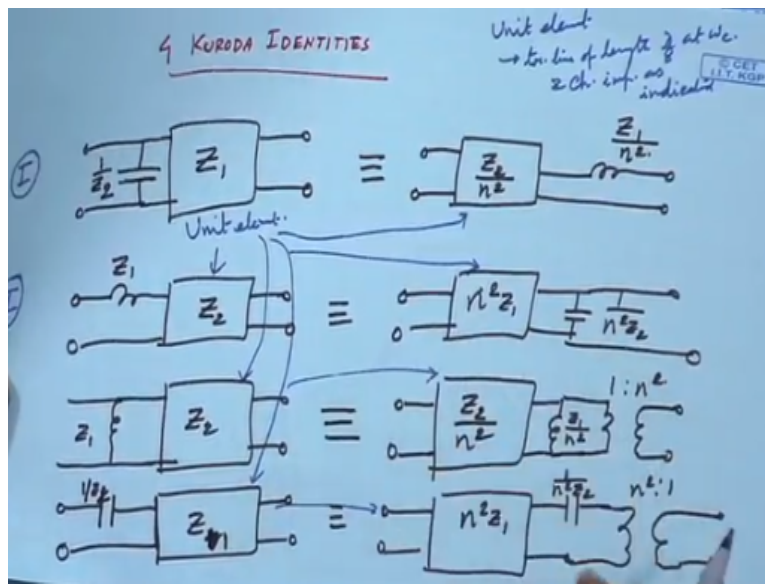 4 KURODA IDENTITIES
Unit element
→ tr. line of length λ/8 at ωc.
& Ch. imp. as
indicated
© CET
I.I.T. KGP
I
1/Z2
Z1
≡
Z2/n²
Z1/n².
Unit element.
Z1
Z2
≡
n²Z1
1/n²Z2
Z1
Z2
≡
Z2/n²
Z1/n²
1:n²
1/Z2
≡
n²Z1
1/n²Z2
n²:1